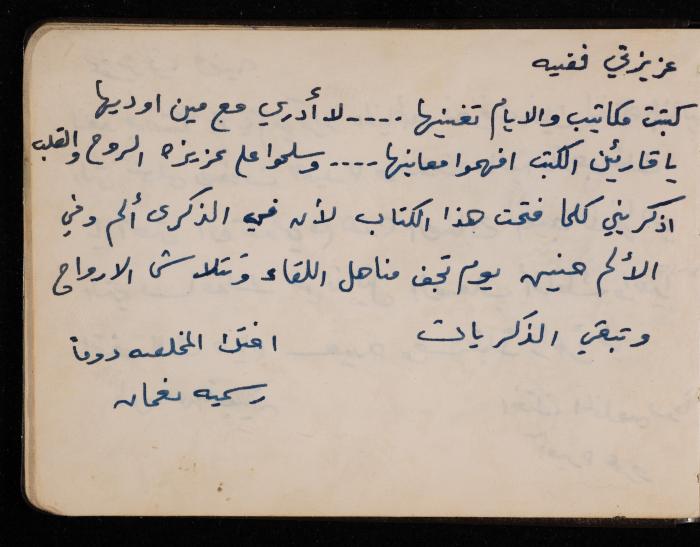 عزيزتي فقيه
كتبت مكاتيب والايام تغنيها .---- لا أدري مع مين اوديها
يا قارئين الكتب افهموا معانيها ---- وسلموا على عزيزة الروح والقلب
اذكريني كلما فتحت هذا الكتاب لأن في الذكرى ألم وفي
الألم حنين يوم تجف مناهل اللقاء وتتلاشى الارواح
وتبقى الذكريات
اختك المخلصه دوماً
رسميه نعمان